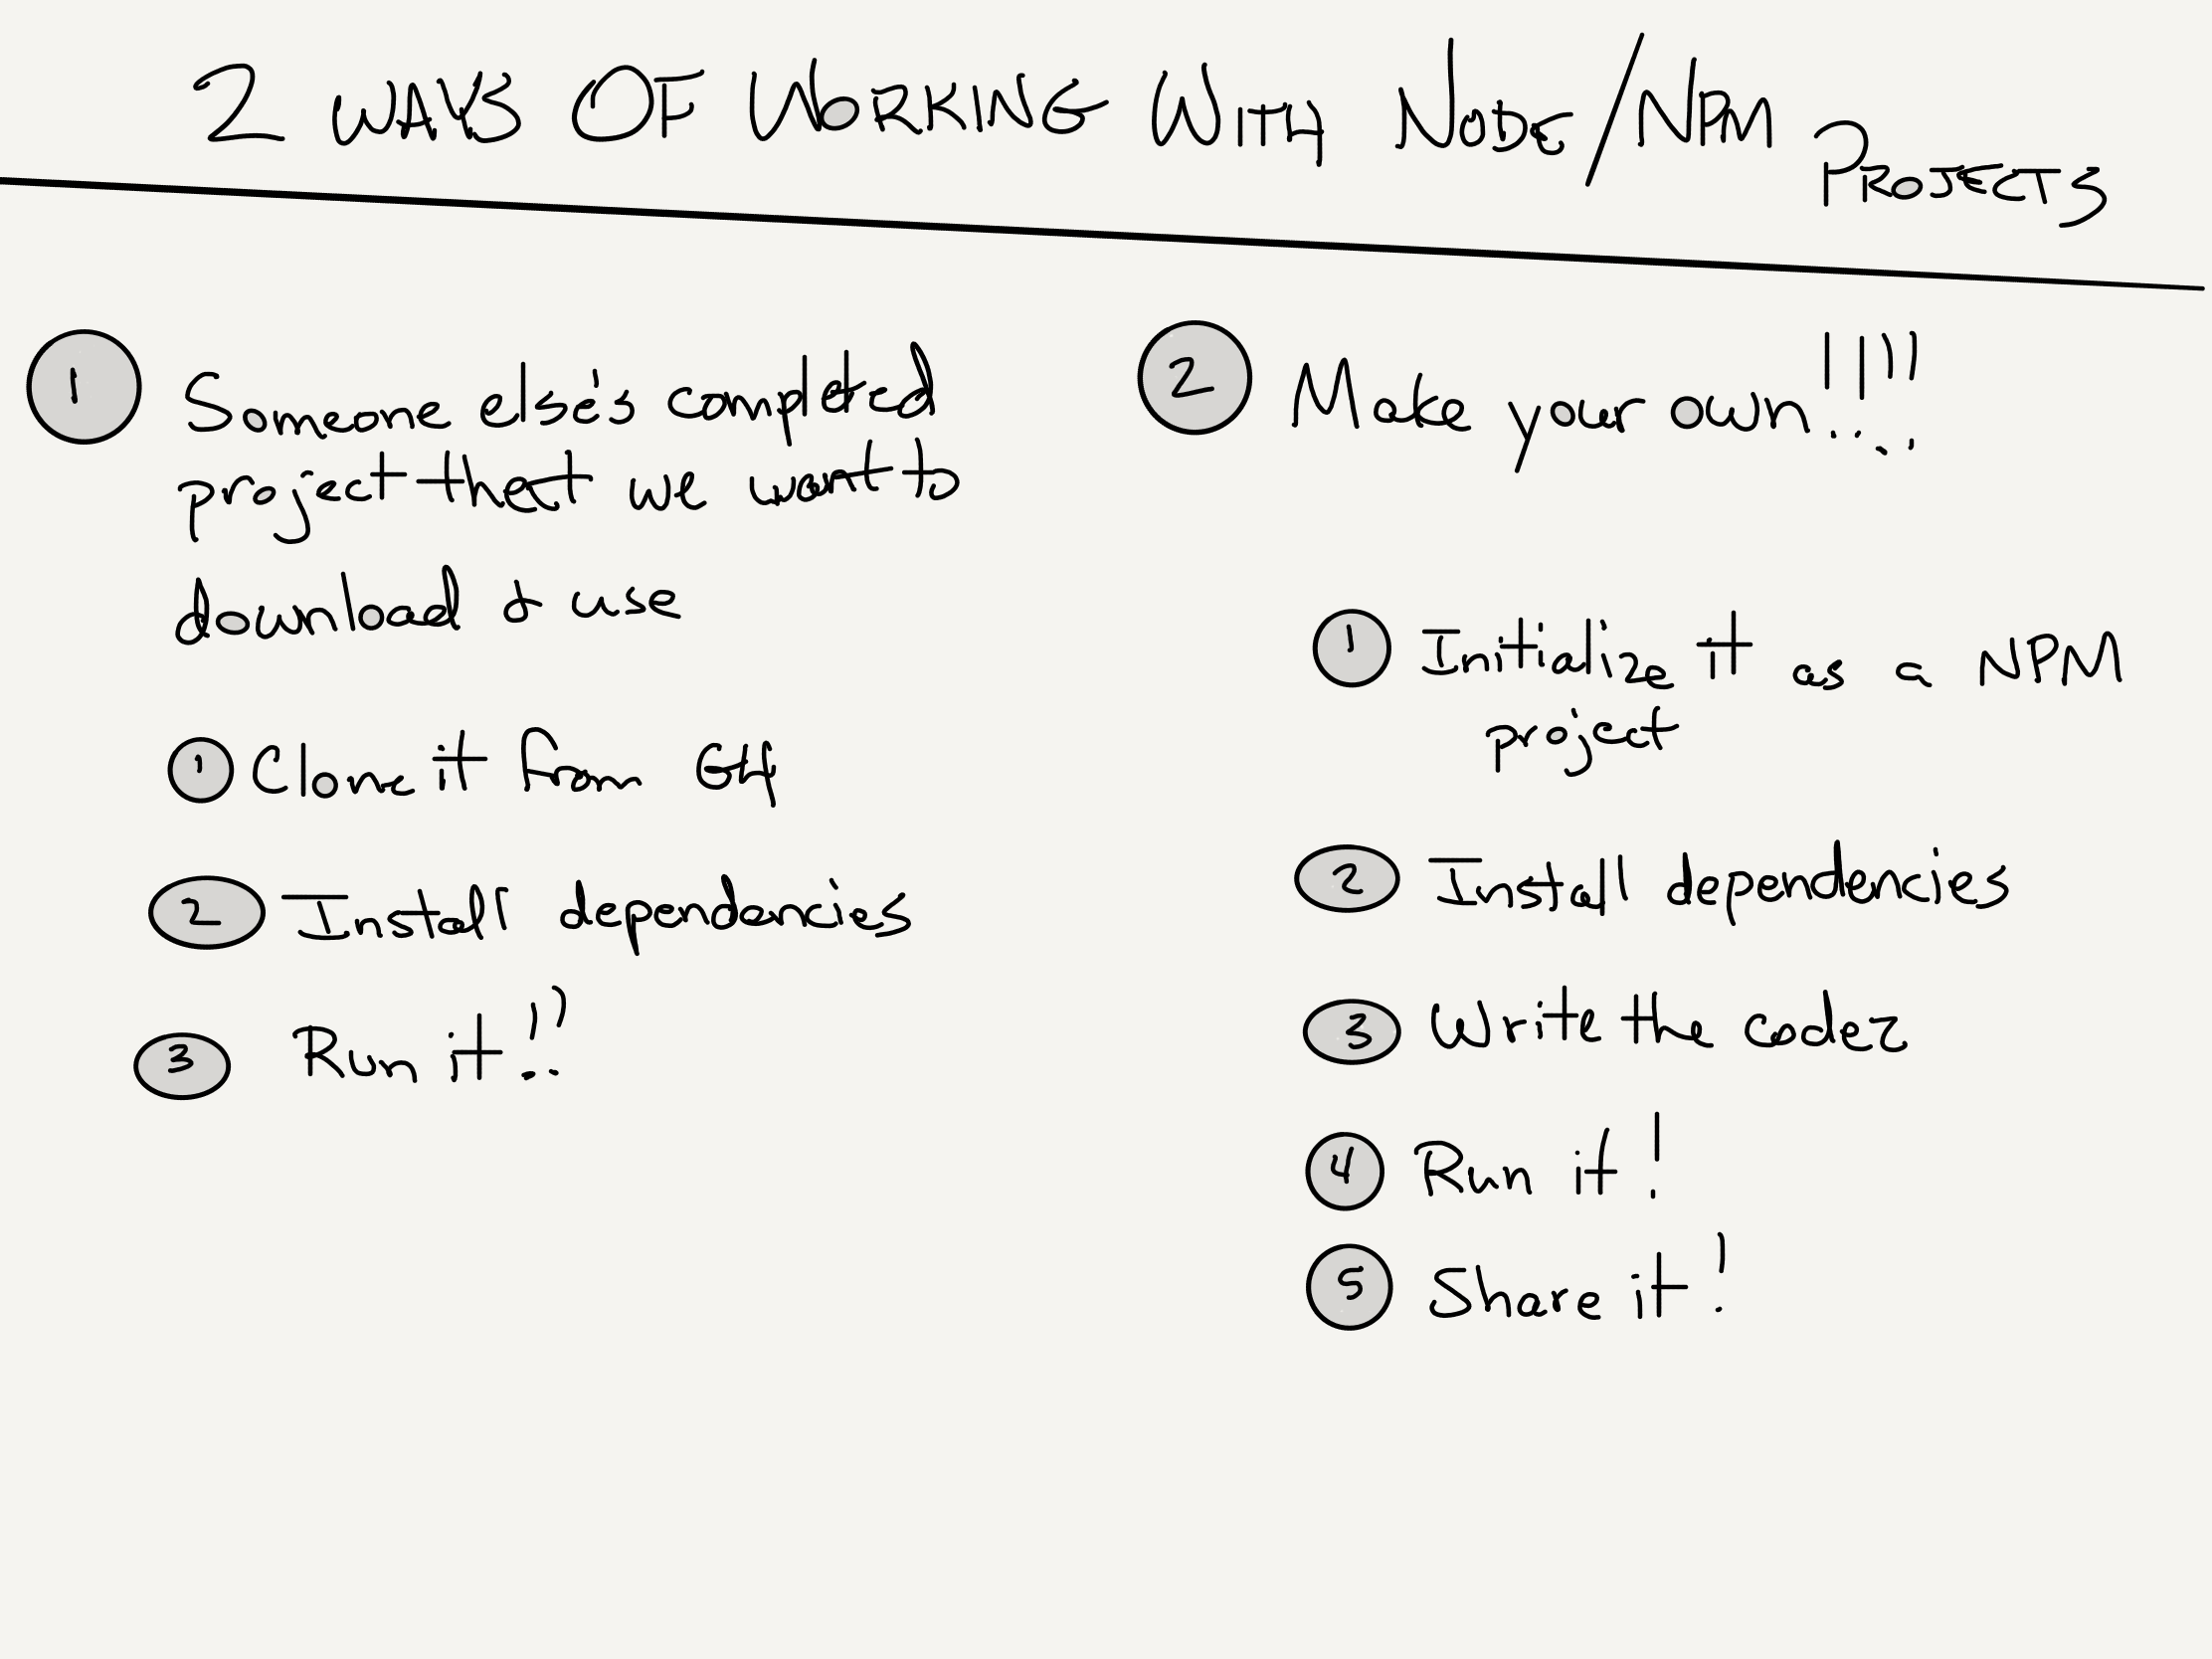 2 WAYS OF WORKING WITH NODE/NPM
PROJECTS
1 Someone else's completed
project that we want to
download & use
1 Clone it from GH
2 Install dependencies
3 Run it!!
2 Make your own!!!!
1 Initialize it as a NPM
project
2 Install dependencies
3 Write the codez
4 Run it!
5 Share it!